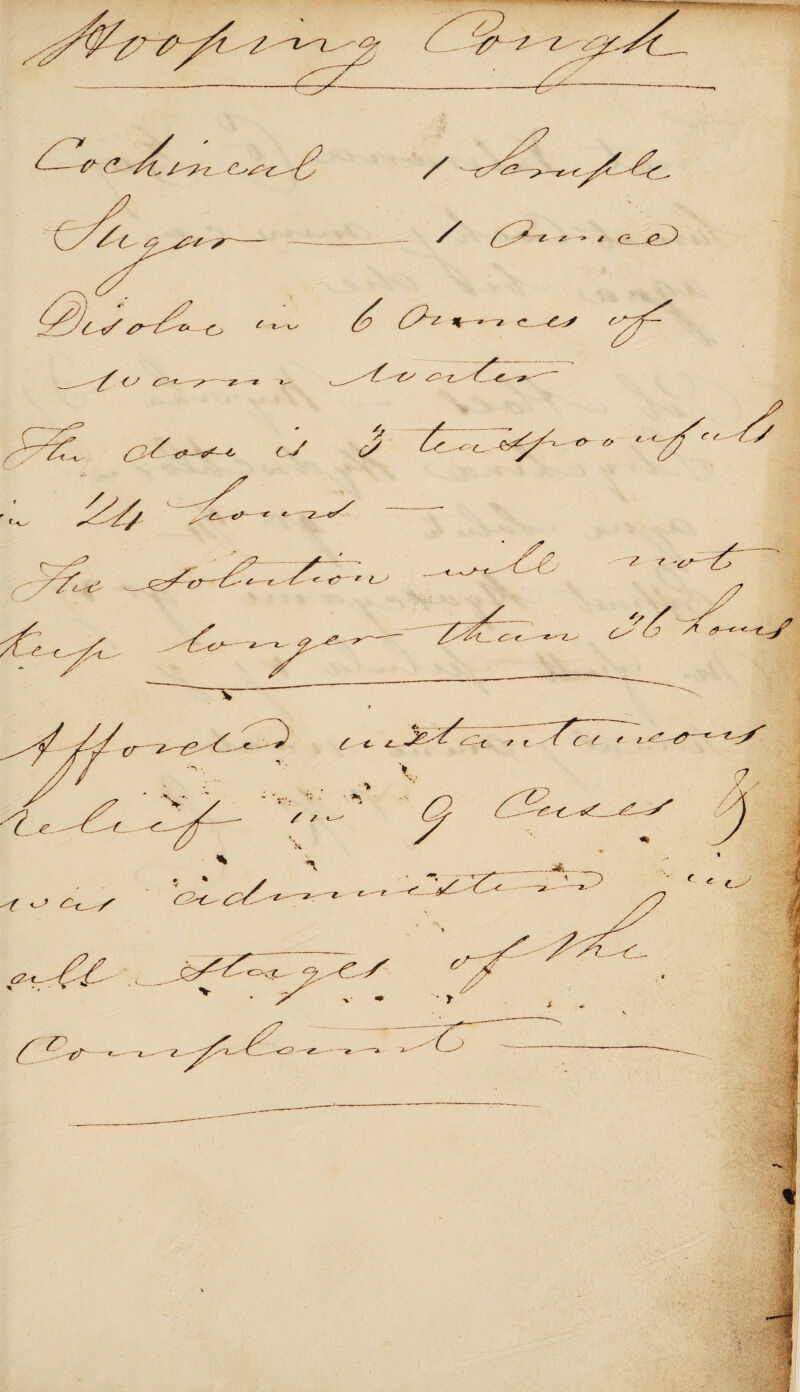 Hooping Cough
Cochineal 1 Scruple
Sugar — 1 Ounce
Disolve in 6 Ounces of
warm water
The dose is 3 teaspoonfuls
in 24 hours —
The solution will not
keep longer than 36 hours
Afforded instantaneous
relief in 9 Cases &
was administered in
all stages of the
Complaint —